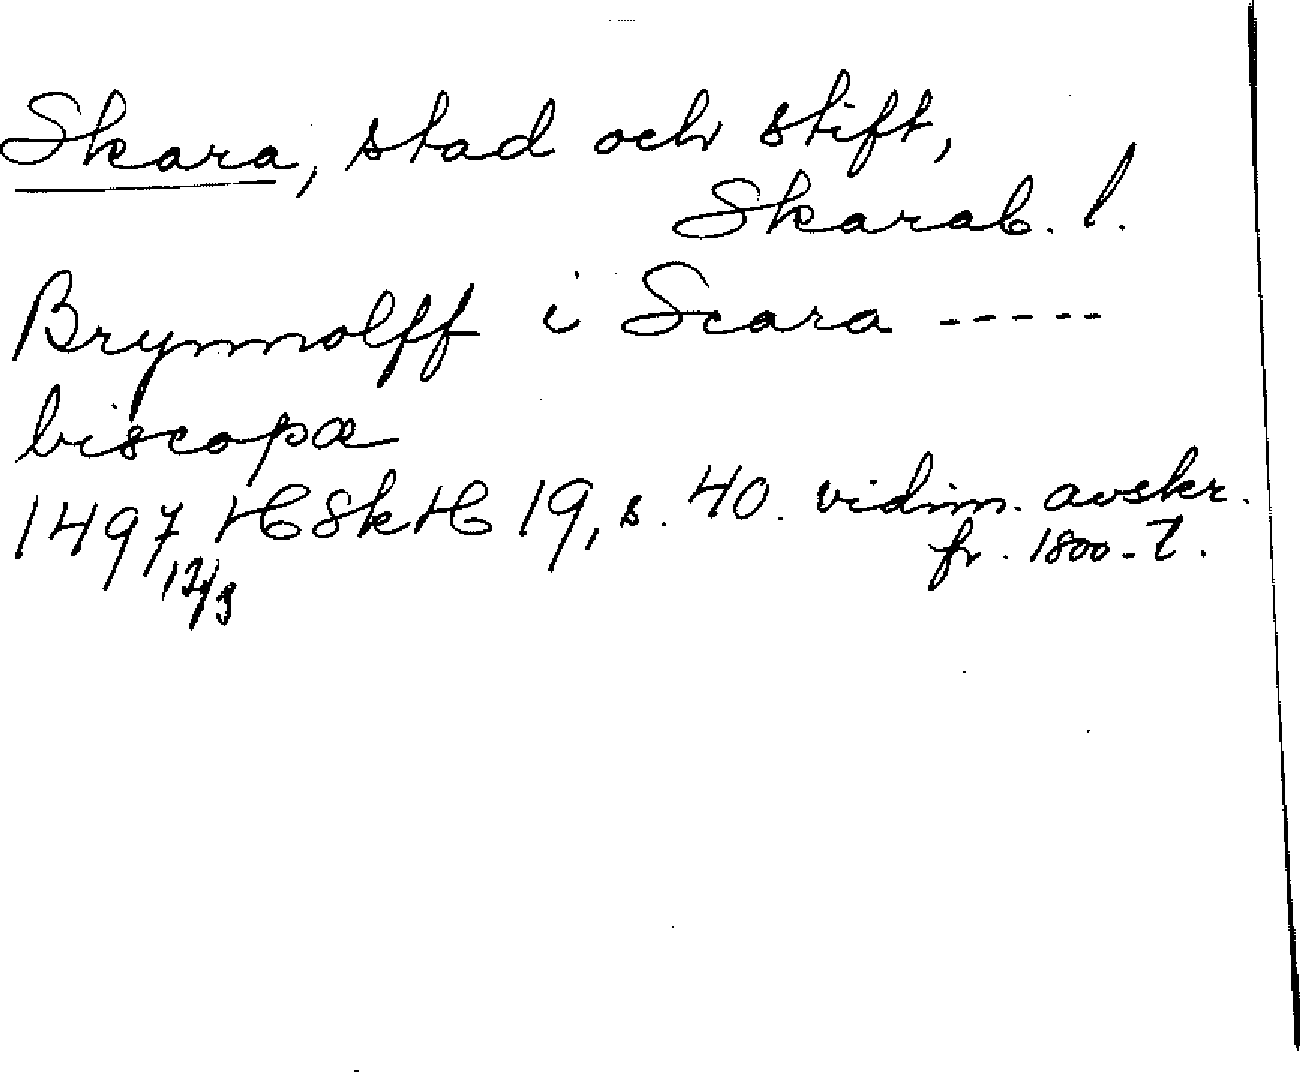 Skara, stad och stift,
Skarab. l.
Brynnolff i Scara -----
biscopæ
1497 HSkH 19, s. 40. vidim. avskr.
12/3 fr. 1800-t.